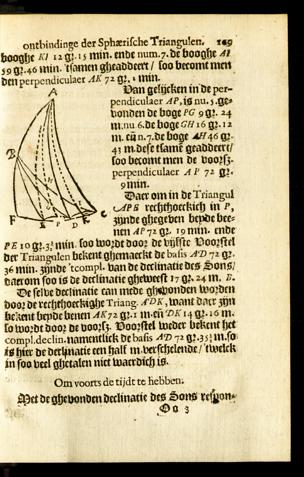 ontbindinge der Sphærische Triangulen. 109
booghe KI 12 gr. 15 min. ende num. 7. de booghe AI
59 gr. 46 min. tsamen gheaddeert / soo becomt men
den perpendiculaer AK 72 gr. 1 min.
Van gelijcken in de per-
pendiculaer AP, is nu. 5. ge-
vonden de booge PG 9 gr. 24
m. nu 6. de boge GH 16 gr. 12
m. eñ n. 7. de boge AH 46 gr.
43 m. dese tsame geaddeert /
soo becomt men de voorsz.
perpendiculaer A P 72 gr.
9 min.
Daer om in de Triangul
APE rechthoeckich in P,
zijnde ghegeben beyde bee-
nen AP 72 gr. 19 min. ende
PE 10 gr. 3½ min. soo wordt door de vijfste Voorstel
der Triangulen bekent ghemaeckt de basis AD 72 gr.
36 min. zijnde 'tcompl. van de declinatie des Sons /
daerom soo is de declinatie gheweest 17 gr. 24 m. B.
De selve declinatie can mede ghevonden worden
door de rechthoeckighe Triang. ADK, want daer zijn
bekent beyde benen AK 72 gr. 1 m. eñ DK 14 gr. 16 m.
so wordt door de voorsz. Voorstel weder bekent het
compl. declin. namentlick de basis AD 72 gr. 35½ m. so
is hier de declinatie een half m. verschelende / 'twelck
in soo veel ghetalen niet waerdich is.
Om voorts de tijdt te hebben.
Met de ghevonden declinatie des Sons respon-
Oo 3
A
B
F
E
P
D
K
C